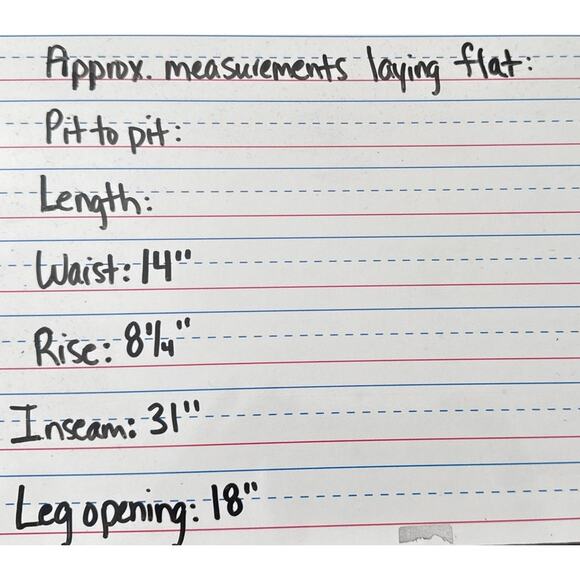 Approx. measurements laying flat:
Pit to pit:
Length:
Waist: 14"
Rise: 8 1/4"
Inseam: 31"
Leg opening: 18"